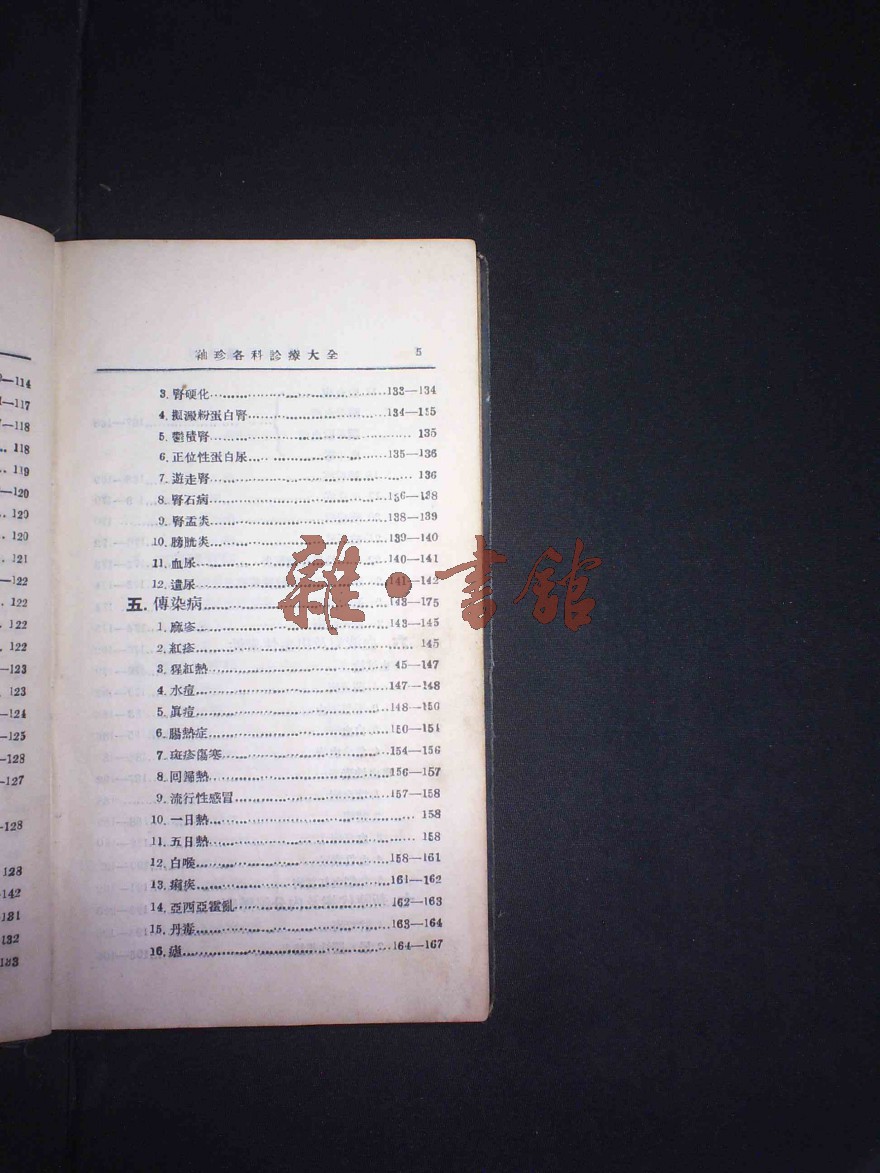 —114
—117
—118
118
119
—120
120
120
121
—122
122
122
122
—123
123
—124
—125
—128
—127
—128
128
—142
131
132
183
袖珍各科診療大全 5
3. 腎硬化 133—134
4. 澱粉蛋白腎 134—135
5. 鬱積腎 135
6. 正位性蛋白尿 135—136
7. 遊走腎 136
8. 腎石病 136—138
9. 腎盂炎 138—139
10. 膀胱炎 139—140
11. 血尿 140—141
12. 遺尿 141—142
五. 傳染病 143—175
1. 麻疹 143—145
2. 紅疹 145
3. 猩紅熱 45—147
4. 水痘 147—148
5. 眞痘 148—150
6. 腸熱症 150—154
7. 斑疹傷寒 154—156
8. 回歸熱 156—157
9. 流行性感冒 157—158
10. 一日熱 158
11. 五日熱 158
12. 白喉 158—161
13. 痢疾 161—162
14. 亞西亞霍亂 162—163
15. 丹毒 163—164
16. 瘧 164—167
雜·書館